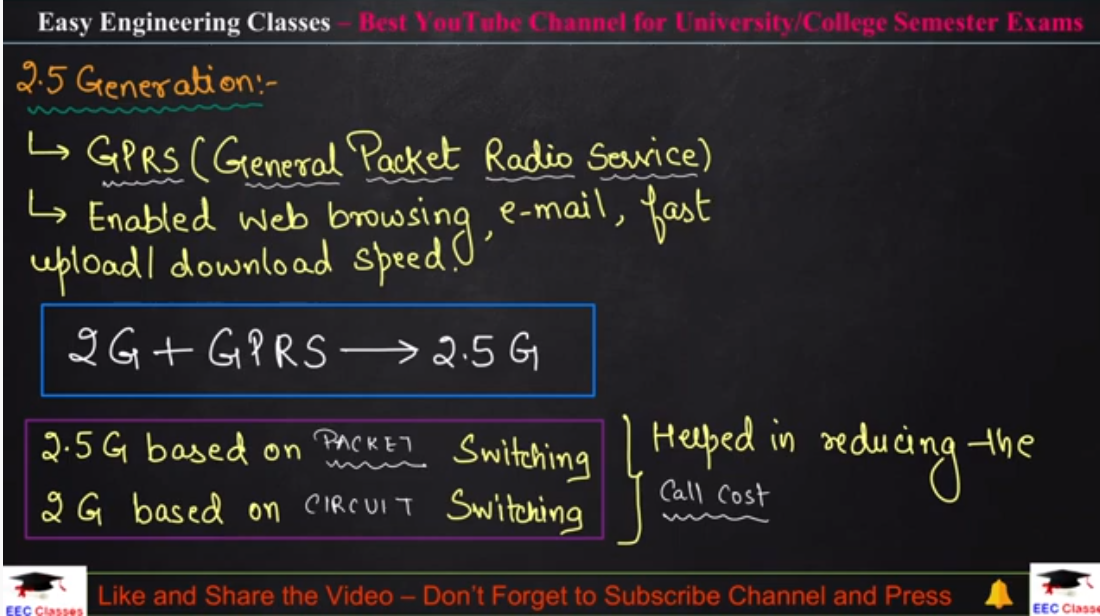 Easy Engineering Classes – Best YouTube Channel for University/College Semester Exams
2.5 Generation:-
↳ GPRS (General Packet Radio Service)
↳ Enabled web browsing, e-mail, fast
upload/download speed.
2G + GPRS → 2.5 G
2.5 G based on PACKET Switching
2 G based on CIRCUIT Switching
Helped in reducing the
Call Cost
Like and Share the Video – Don't Forget to Subscribe Channel and Press
EEC Classes
EEC Classes